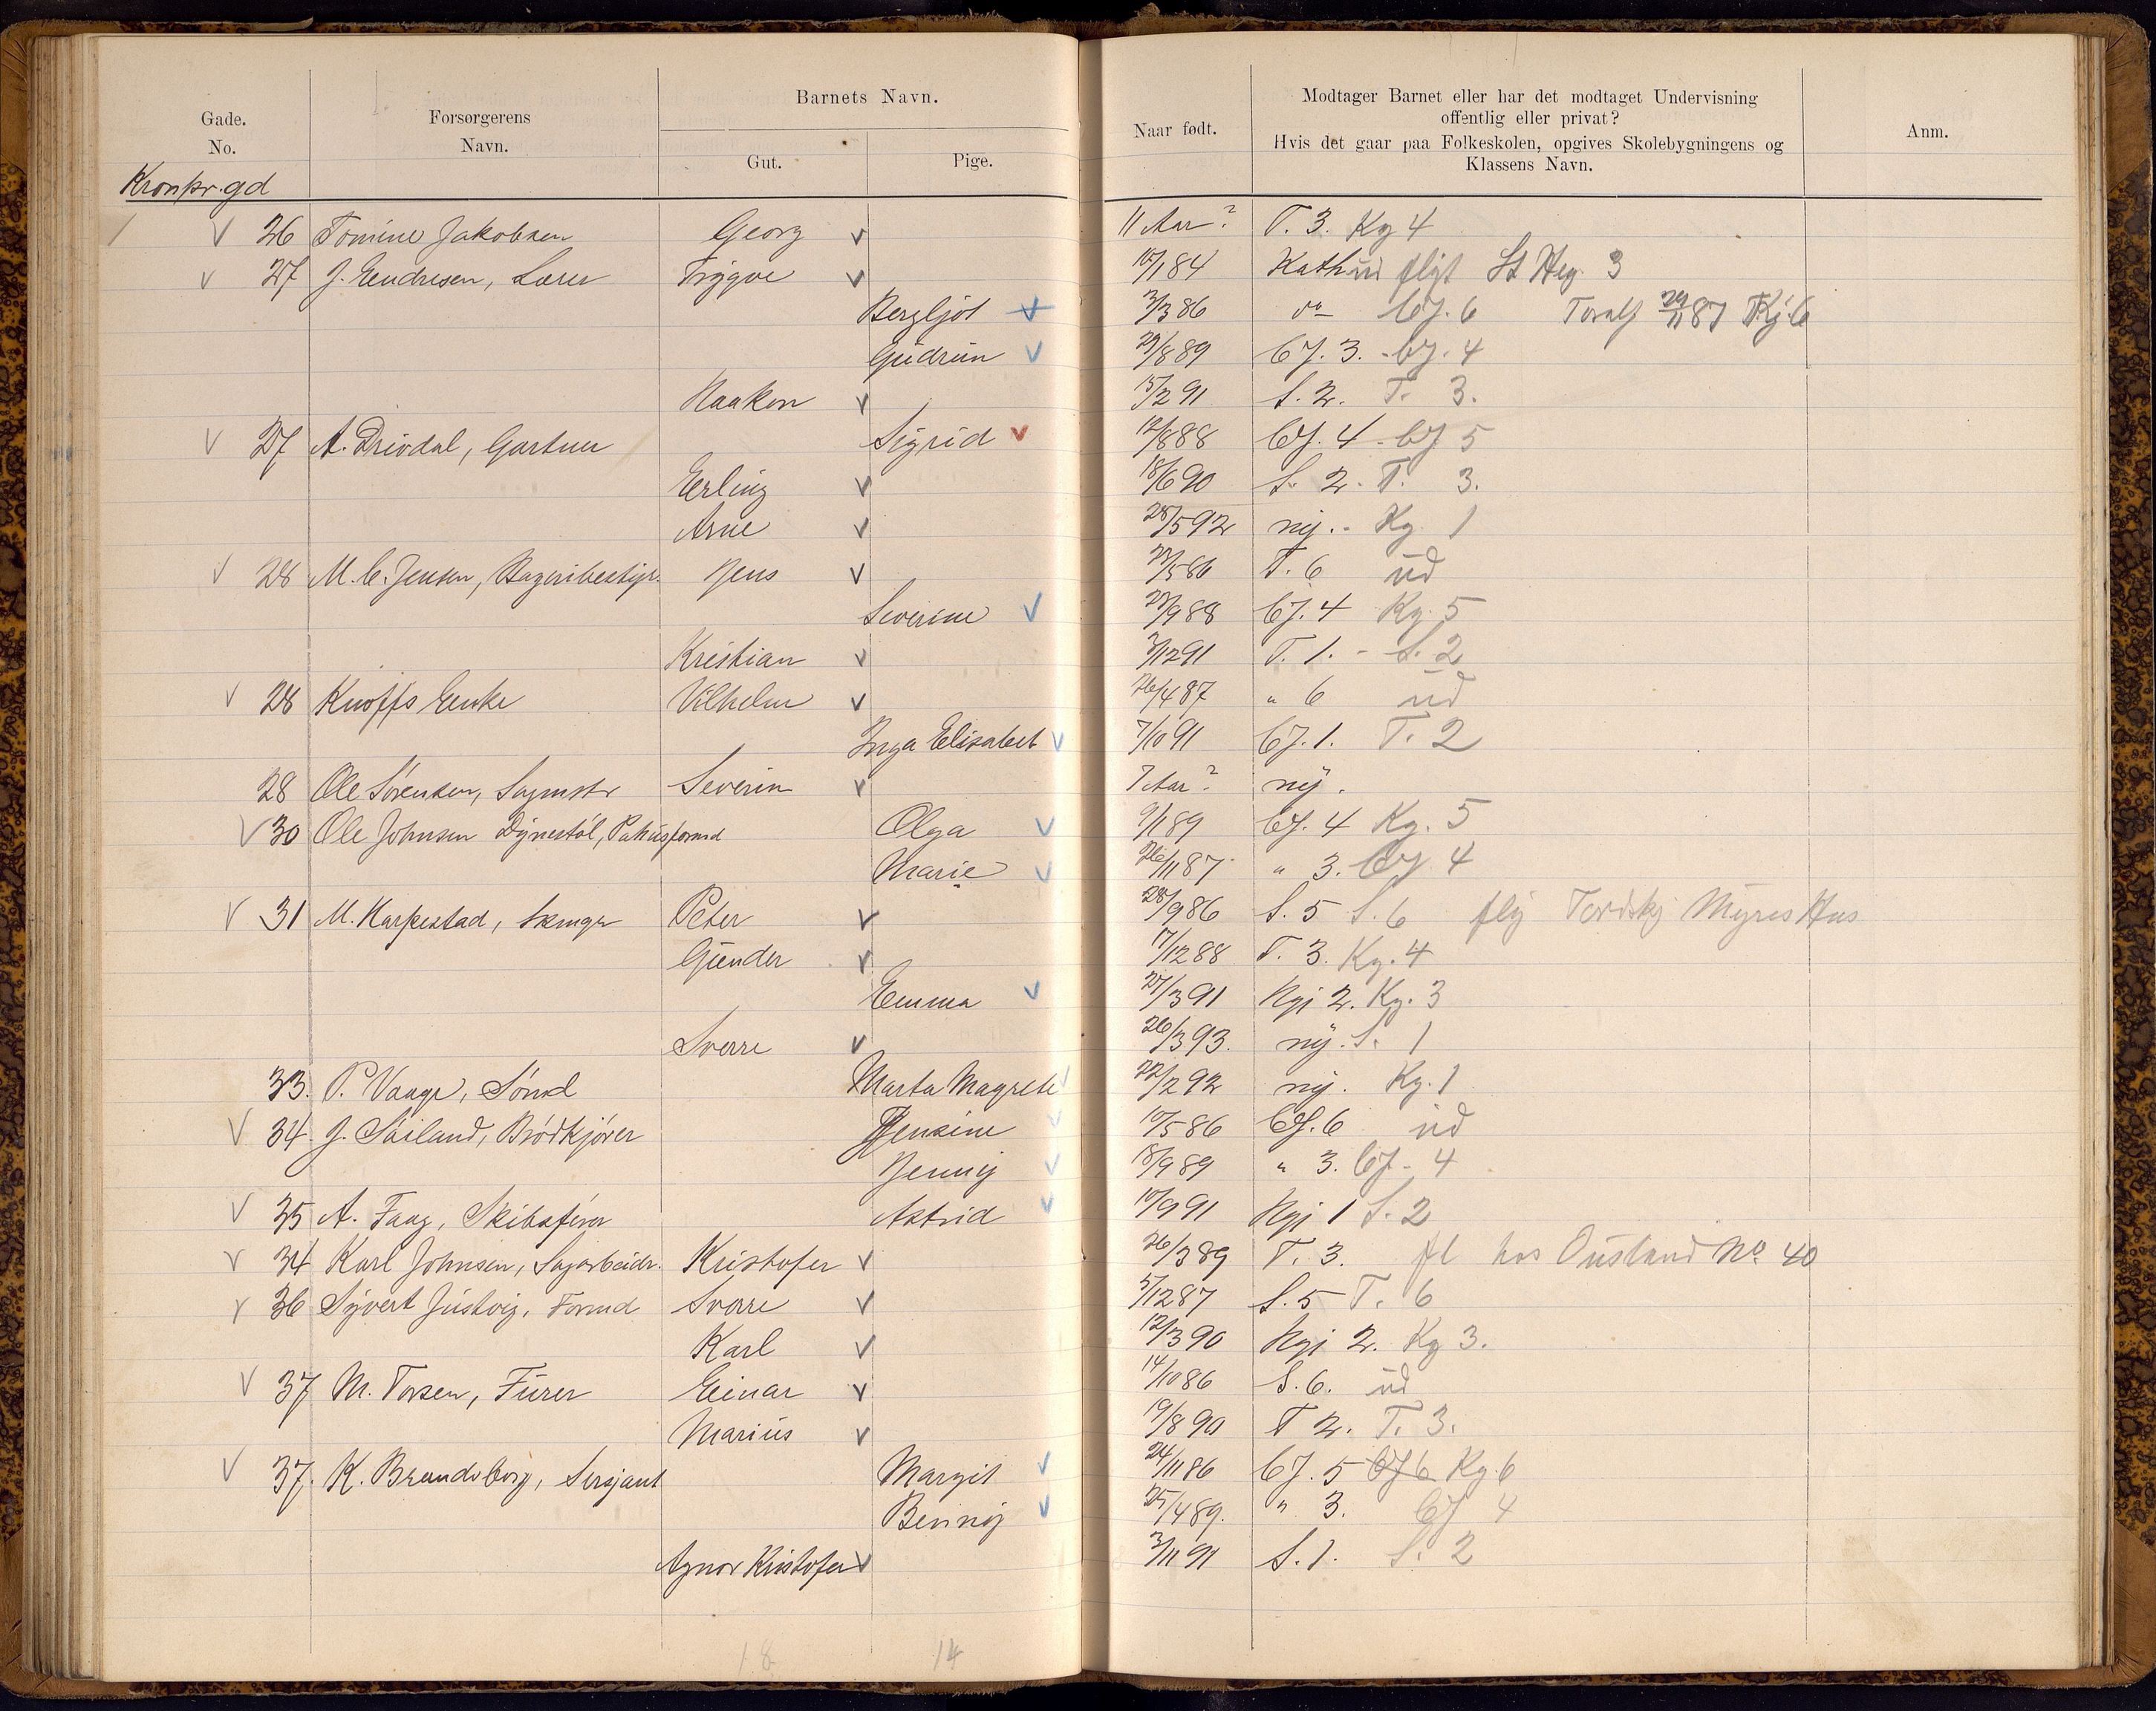 Gade.
No.
Forsørgerens
Navn.
Barnets Navn.
Gut.
Pige.
Naar født.
Modtager Barnet eller har det modtaget Undervisning
offentlig eller privat?
Hvis det gaar paa Folkeskolen, opgives Skolebygningens og
Klassens Navn.
Anm.
Kronpr.gd
26 Tomine Jakobsen Georg 11 Aar? T. 3. Kg 4
27 J. Eendresen, Lærer Trygve 10/1 84 flyt 3
Bergljot 3/3 86 do 6 Toralf 29/11 87 6
Gudrun 29/8 89 CJ. 3. CJ. 4
Haakon 15/2 91 S. 2. T. 3.
27 A. Drivdal, Gartner Sigrid 12/8 88 CJ. 4 - CJ 5
Erling 18/6 90 S. 2. T. 3.
Arne 28/5 92 ny. - Kg 1
28 M. C. Jensen, Bageribestyr. Jens 23/5 86 T. 6 ud
Severine 23/9 88 CJ. 4 Kg. 5
Kristian 3/12 91 T. 1. - S. 2
28 Knoffs Enke Vilhelm 26/4 87 " 6 ud
Inga Elisabet 7/10 91 CJ. 1. T. 2
28 Ole Sørensen, Sagmstr Severin 7 Aar? ny.
30 Ole Johnsen Dynestøl, Pakhusformd Olga 9/1 89 CJ. 4 Kg. 5
Marie 26/11 87 " 3. CJ 4
31 M. Karpestad, Peter 28/9 86 S. 5 S. 6 fly Myres Hus
Gunder 17/12 88 T. 3. Kg. 4
Emma 27/3 91 Kgj 2. Kg. 3
Sverre 26/3 93. ny. S. 1
33. P. Vaage, Marta Magrete 22/2 92 ny. Kg. 1
34. J. Søiland, Brødkjører Jensine 10/5 86 CJ. 6 ud
Jenny 18/9 89 " 3. CJ - 4
35 A. Faag, Skibsfører Astrid 10/9 91 Kgj 1 S. 2
34 Karl Johnsen, Sagarbeider. Kristofer 26/3 89 T. 3. fl hos Ousland No 40
36 Syvert Justvig, Formd Sverre 5/12 87 S. 5 T. 6
Karl 12/3 90 Kgj 2. Kg 3.
37 M. Torsen, Furer Einar 14/10 86 S. 6. ud
Marius 19/8 90 T 2. T. 3.
37. K. Brundsborg, Sersjant Margit 24/11 86 CJ. 5 CJ 6 Kg. 6
Benny 25/4 89. " 3. CJ 4
Agnor Kristofer 3/11 91 S. 1. S. 2
18 14